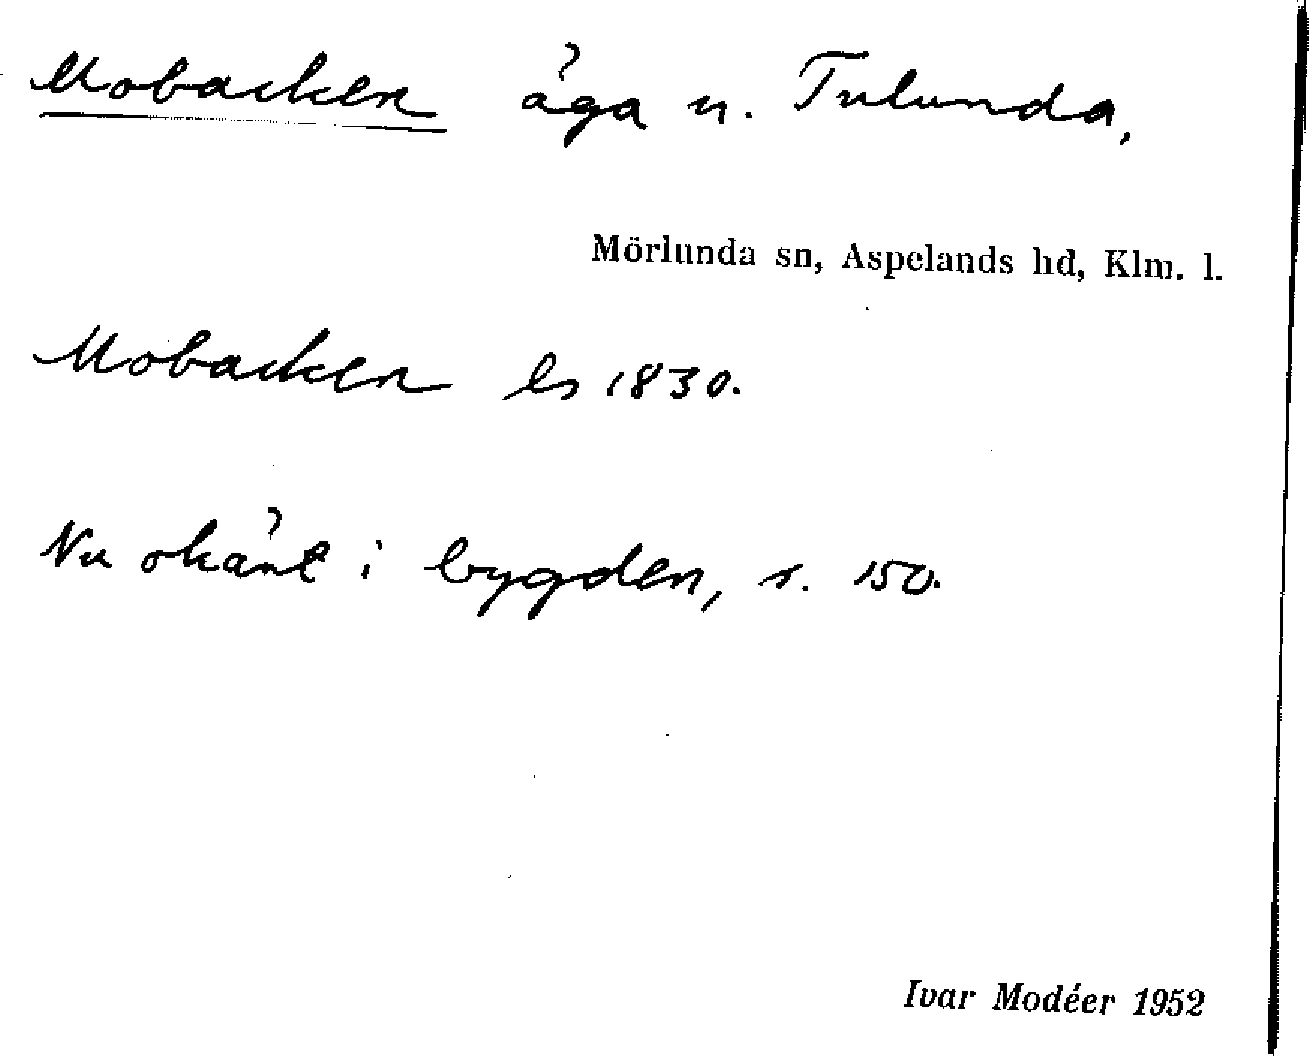 Mobacken äga u. Tulunda,
Mörlunda sn, Aspelands hd, Klm. l.
Mobacken ls 1830.
Nu okänt i bygden, s. 150.
Ivar Modéer 1952